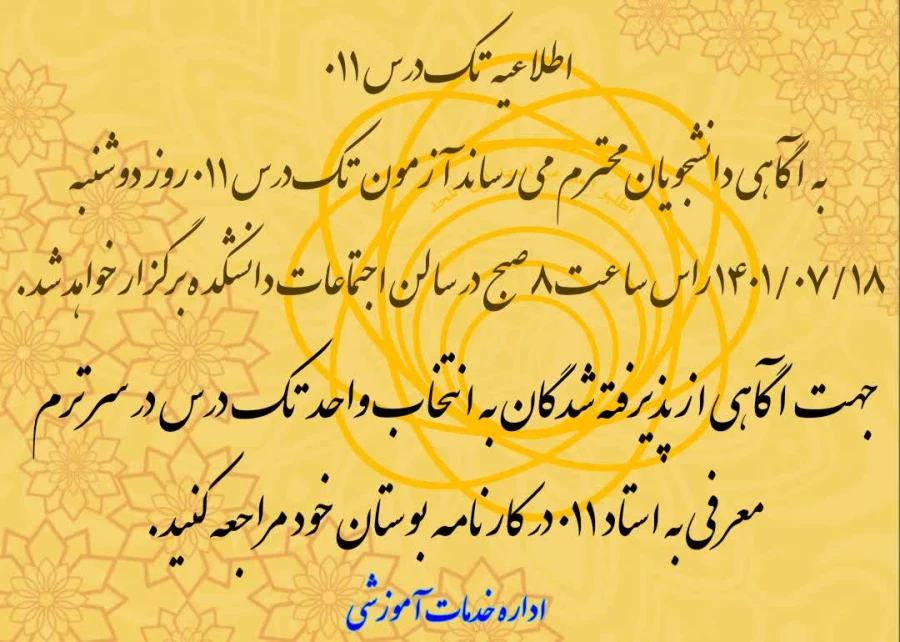 اطلاعیه تک درس ۰۱۱
به آگاهی دانشجویان محترم می رساند آزمون تک درس ۰۱۱ روز دوشنبه
۱۴۰۱/۰۷/۱۸ راس ساعت ۸ صبح در سالن اجتماعات دانشکده برگزار خواهد شد.
جهت آگاهی از پذیرفته شدگان به انتخاب واحد تک درس در سر ترم
معرفی به استاد ۰۱۱ در کارنامه بوستان خود مراجعه کنید.
اداره خدمات آموزشی